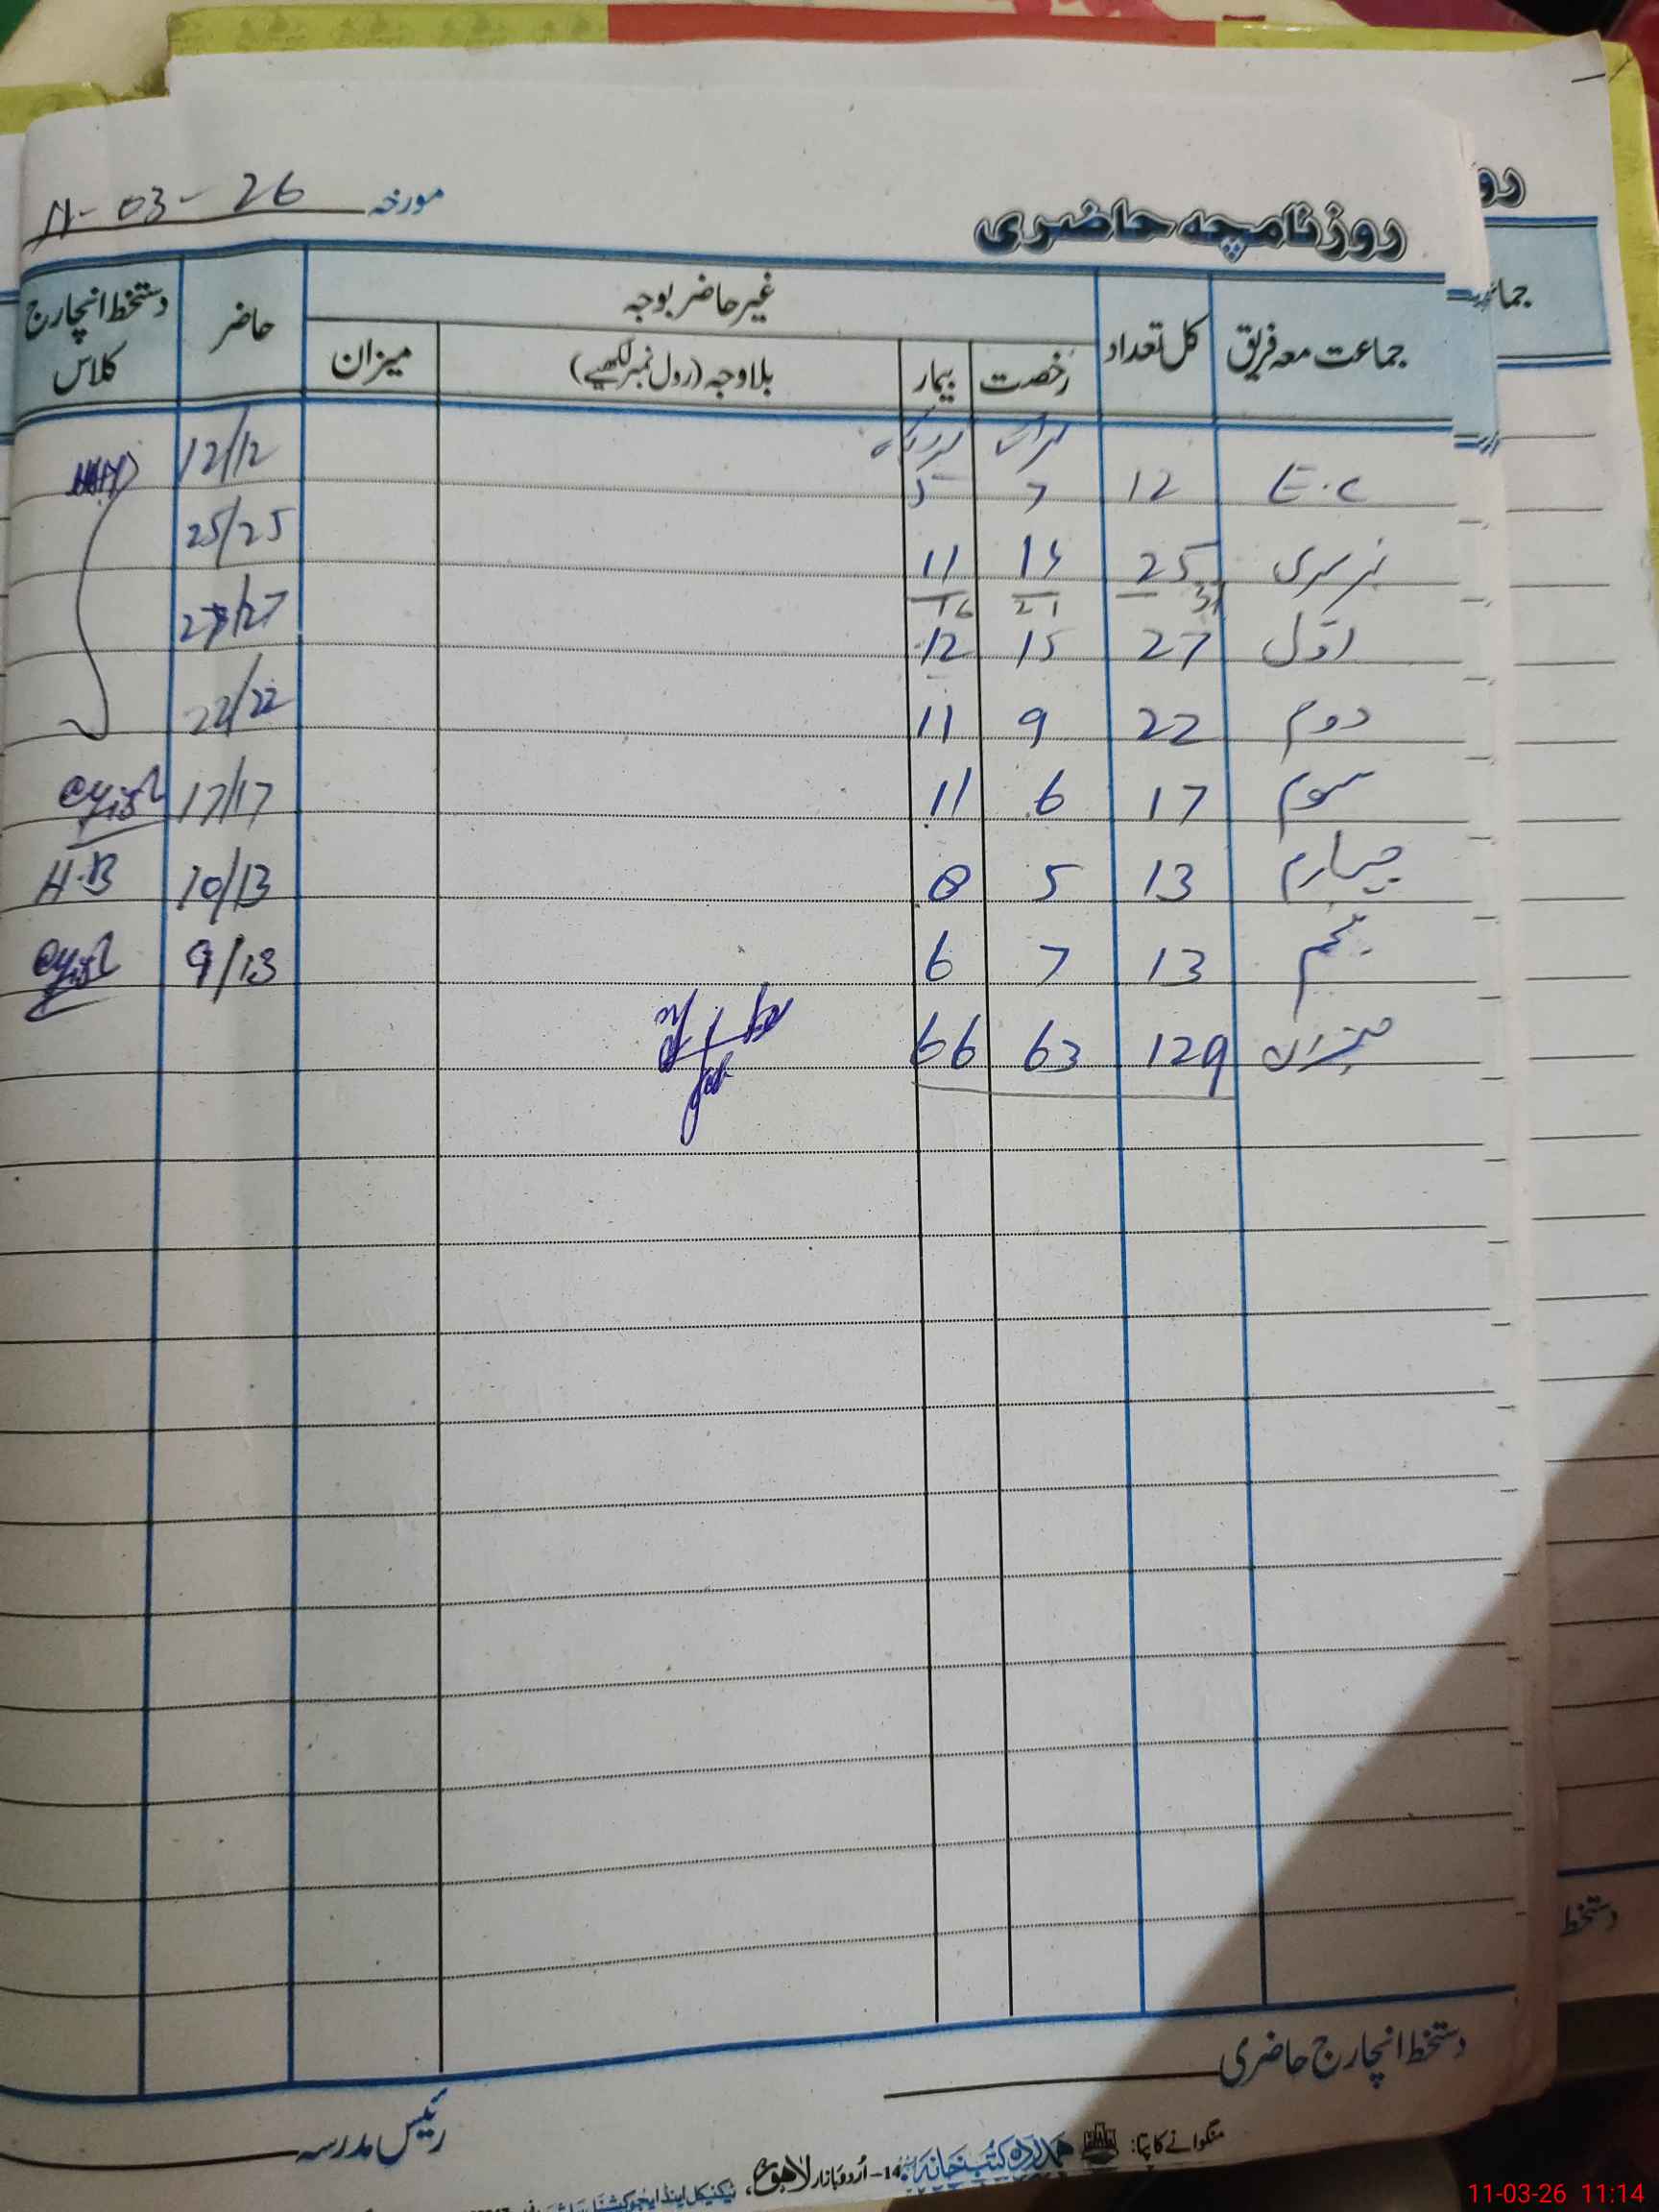 روزنامچہ حاضری
مورخہ 11-03-26
جماعت معہ فریق کل تعداد غیر حاضر بوجہ حاضر دستخط انچارج کلاس
رخصت بیمار بلاوجہ (رول نمبر لکھیے) میزان
E.C 12 7 5 12/12
نرسری 25 14 11 25/25
37 21 16
اوّل 27 15 12 27/27
دوم 22 9 11 22/22
سوم 17 6 11 17/17
چہارم 13 5 8 10/13 H.B
پنجم 13 7 6 9/13
میزان 129 63 66
دستخط انچارج حاضری
رئیس مدرسہ
منگوانے کا پتا: ہمدرد کتب خانہ 14-اُردو بازار لاہور، ٹیکنیکل اینڈ ایجوکیشنل
رو
جما
دستخط
11-03-26 11:14